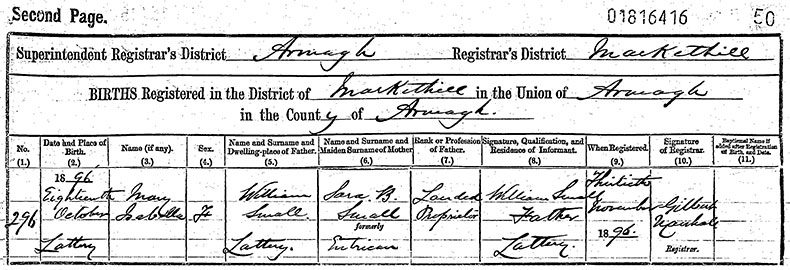 Second Page. 01816416 50
Superintendent Registrar's District Armagh Registrar's District Markethill
BIRTHS Registered in the District of Markethill in the Union of Armagh
in the County of Armagh.
No. (1.) Date and Place of Birth. (2.) Name (if any). (3.) Sex. (4.) Name and Surname and Dwelling-place of Father. (5.) Name and Surname and Maiden Surname of Mother. (6.) Rank or Profession of Father. (7.) Signature, Qualification, and Residence of Informant. (8.) When Registered. (9.) Signature of Registrar. (10.) Baptismal Name if added after Registration of Birth, and Date. (11.)
296
1896
Eighteenth
October
Lattery
Mary
Isabella
F
William
Small.
Lattery.
Sara B.
Small
formerly
Entrican
Landed
Proprietor
William Small
Father
Lattery.
Thirtieth
November
1896.
Gilbert
Registrar.